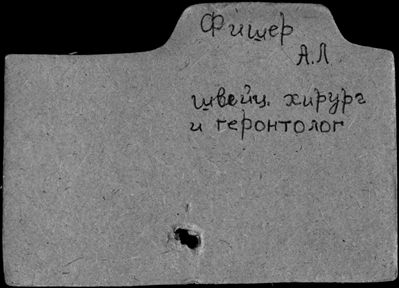 Фишер
А.Л
швейц. хирург
и геронтолог